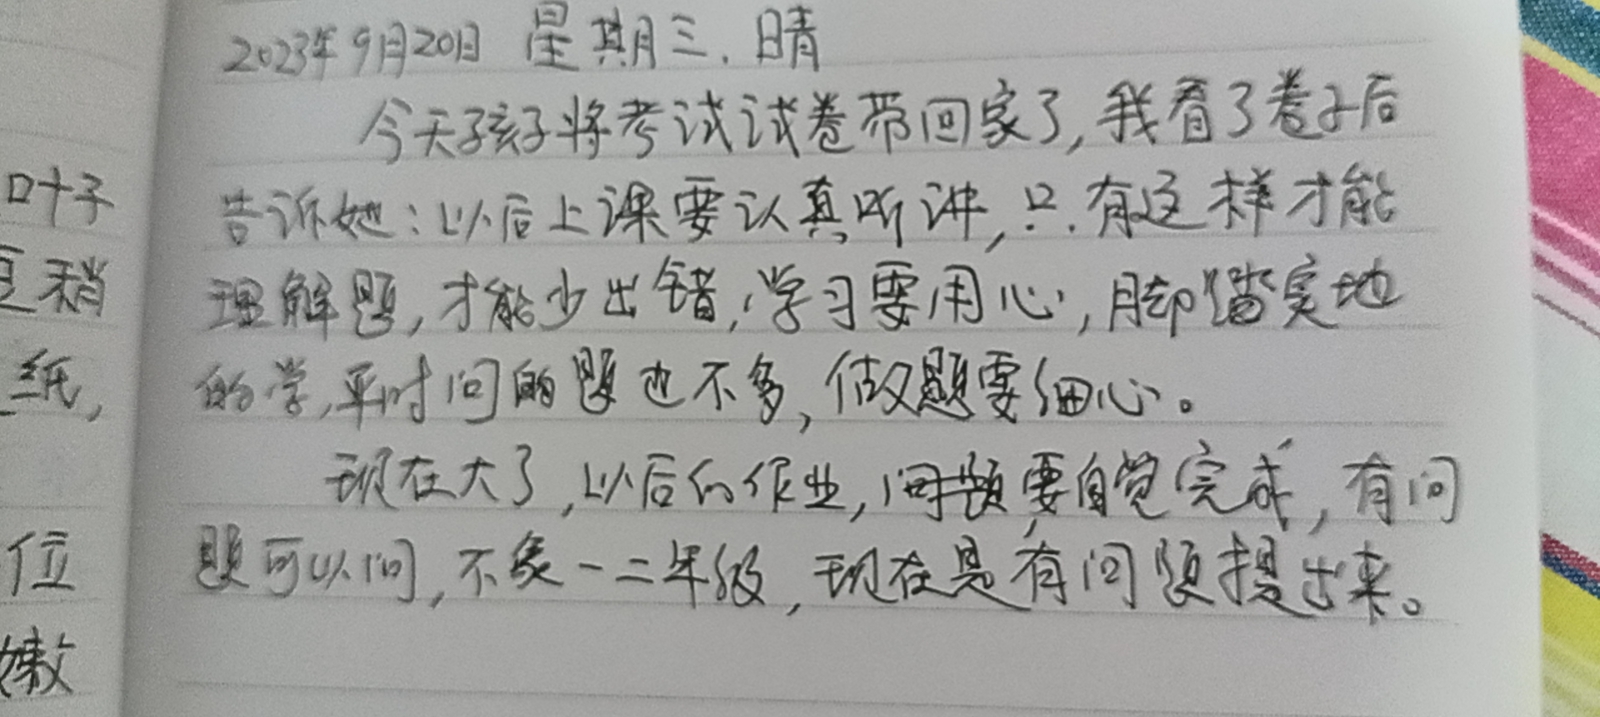 2023年9月20日 星期三.晴
今天孩子将考试试卷带回家了,我看了卷子后
告诉她:以后上课要认真听讲,只有这样才能
理解题,才能少出错,学习要用心,脚踏实地
的学,平时问的题也不多,做题要细心。
现在大了,以后的作业,问题要自觉完成,有问
题可以问,不象一二年级,现在是有问题提出来。
叶子
稍
纸,
位
嫩